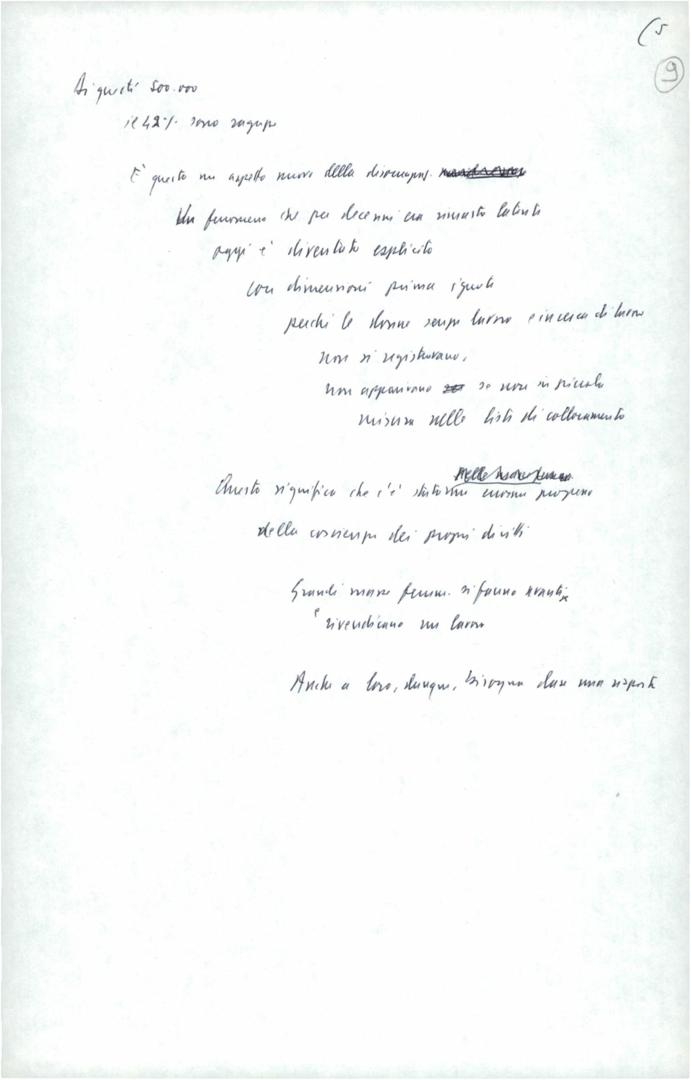 (5
9
Di questi 500.000
il 42% sono ragazze
È questo un aspetto nuovo della disoccupaz.
Un fenomeno che per decenni era rimasto latente
oggi è diventato esplicito
con dimensioni prima ignote
perché le donne senza lavoro e in cerca di lavoro
non si registravano,
non apparivano se non in piccola
misura nelle liste di collocamento
Questo significa che c'è stato un enorme progresso
della coscienza dei propri diritti
Grandi masse femm. si fanno avanti
e rivendicano un lavoro
Anche a loro, dunque, bisogna dare una risposta